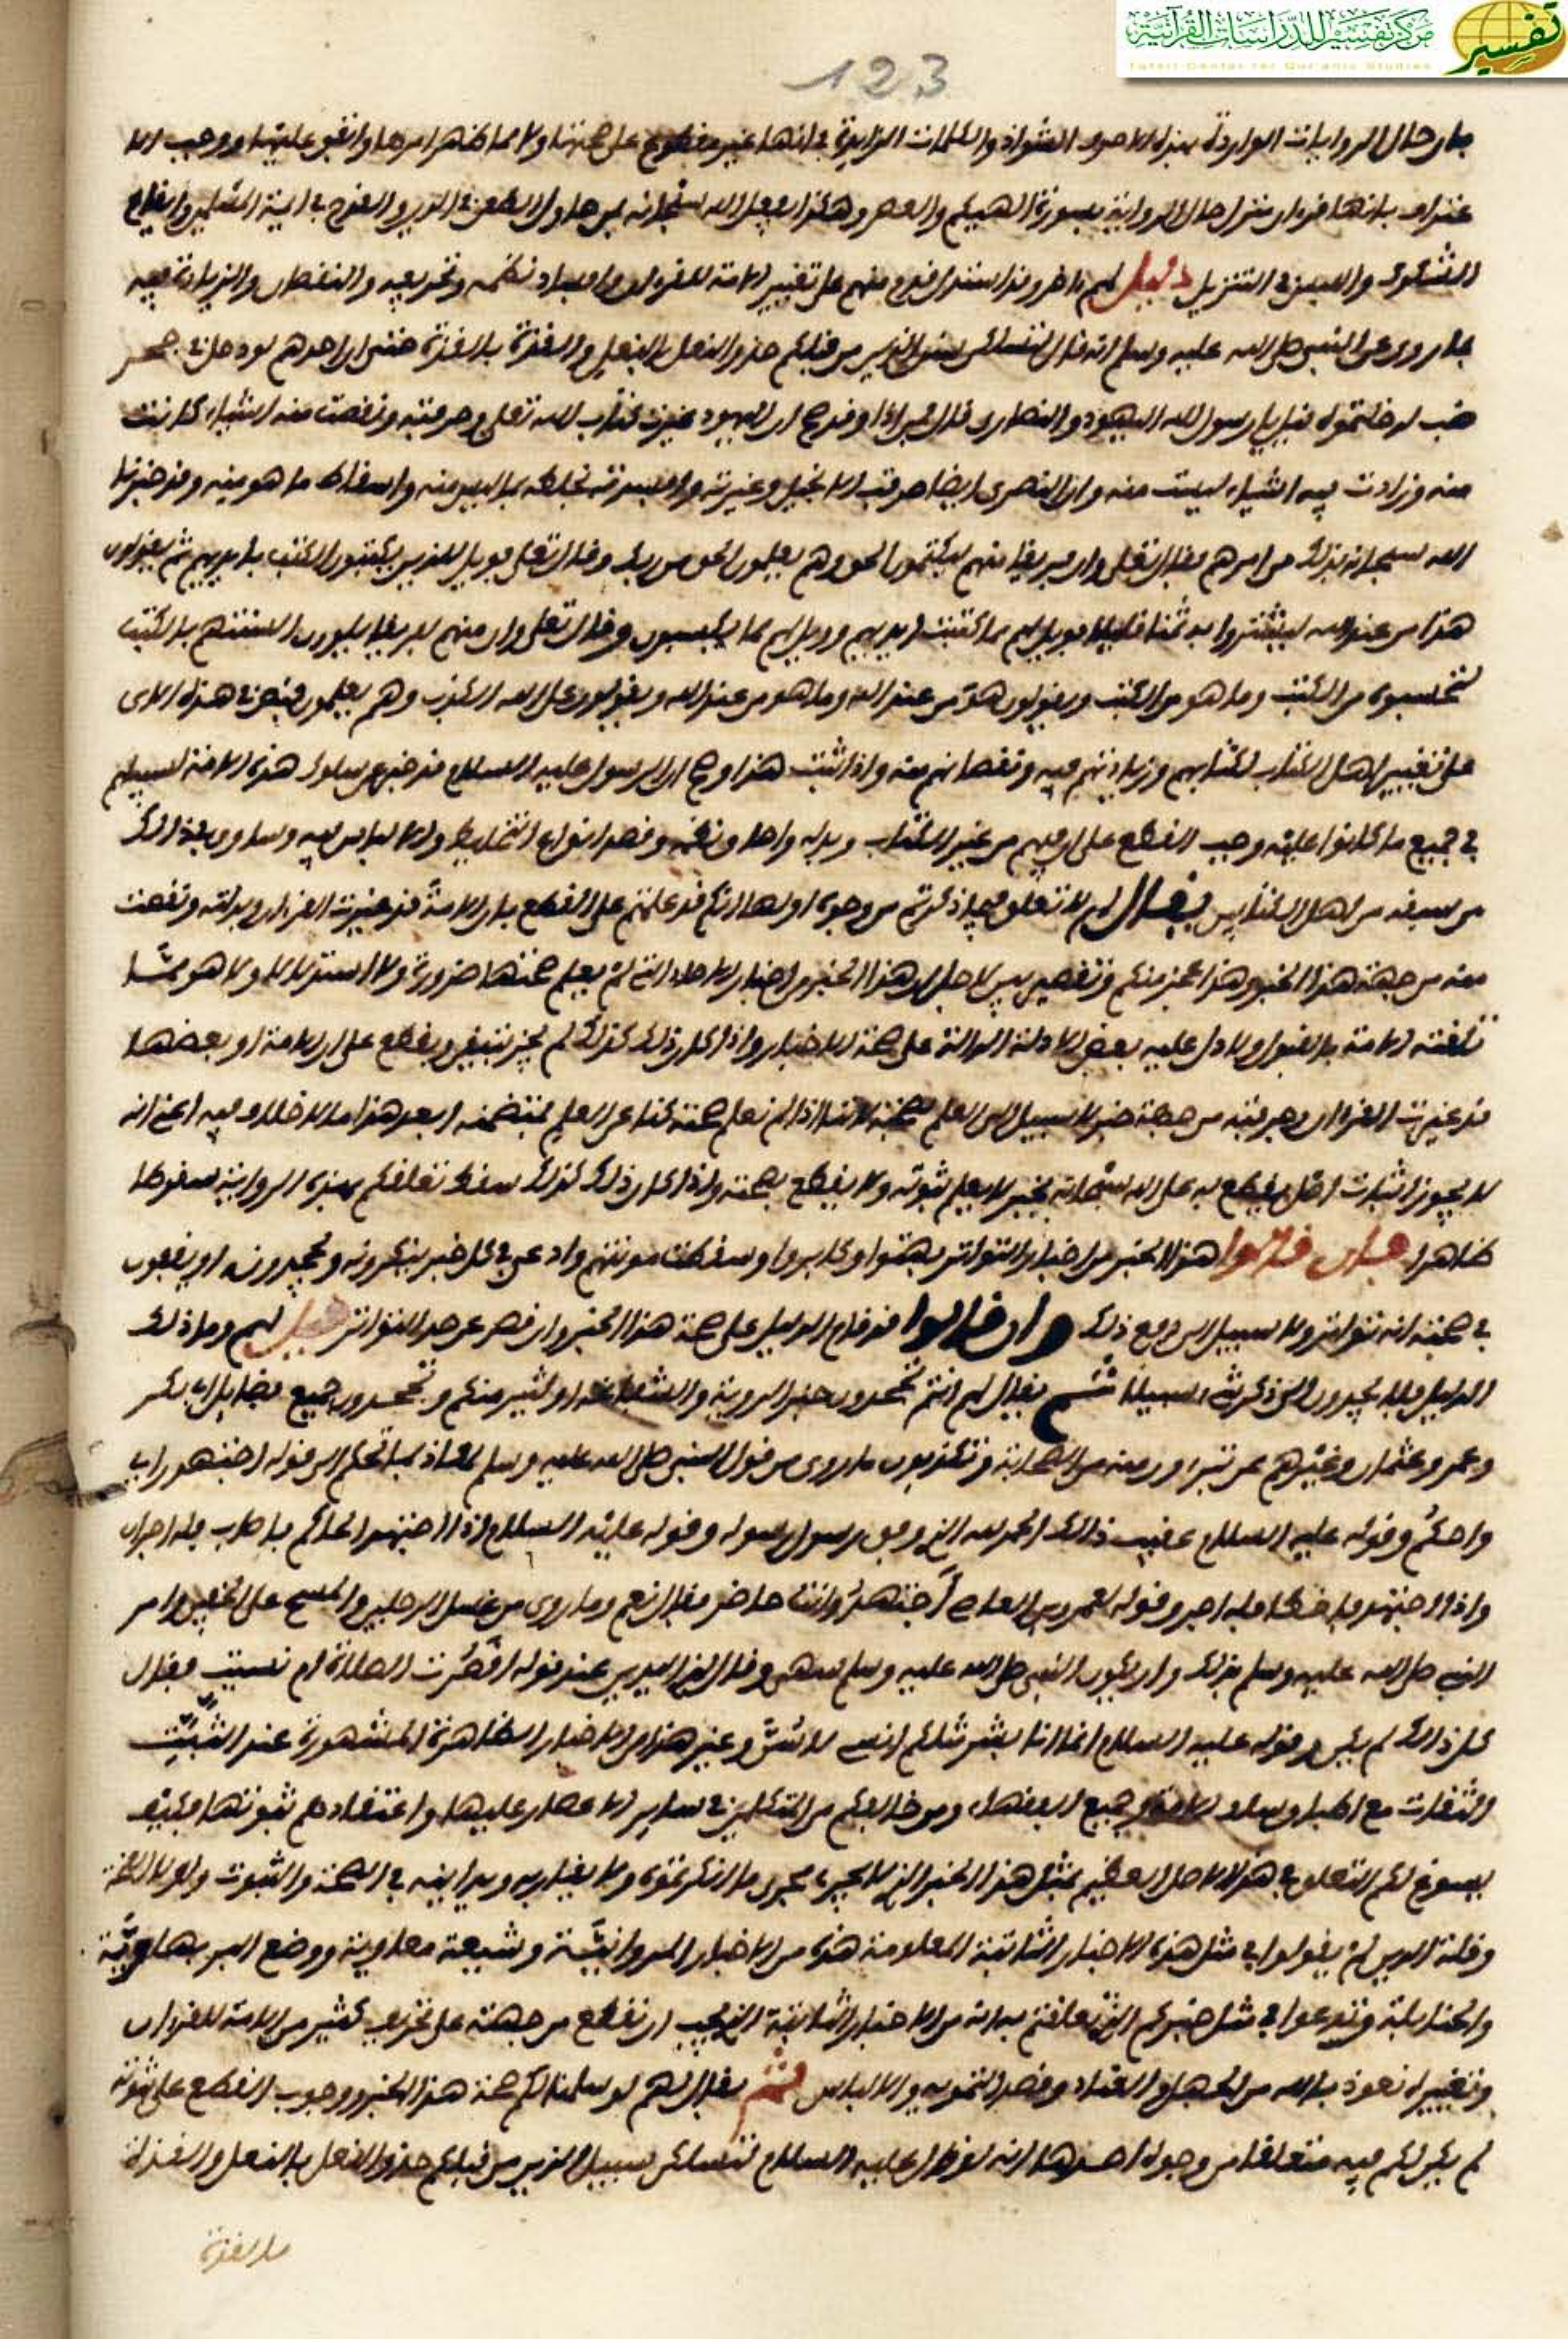 مركز تفسير للدراسات القرآنية
Tafsir Center for Qur'anic Studies
تفسير
123
بان حال الروايات الواردة بهذه الاحرف الشواذ والكلمات الزايدة في انها غير مقطوع على صحتها ولا مما ظهر امرها واتفق عليها ووجب
الشكوك واللبس في التنزيل دليل لهم اخر وقد استدل قوم منهم على تغيير الامة للقران وافساد نظمه وتحريفه والنقصان والزيادة فيه
بما روي عن النبي صلى الله عليه وسلم انه قال لتسلكن سنن الذين من قبلكم حذو النعل بالنعل والقذة بالقذة حتى لو ان احدهم لو دخل في جحر
ضب لدخلتموه قيل يا رسول الله اليهود والنصارى قال فمن اذا وقد صح ان اليهود غيرت كتاب الله تعلى وحرفته ونقصت منه اشياء كانت
منه وزادت فيه اشياء ليست منه وان النصرى ايضا حرفت الانجيل وغيرته وافسدته بخلطه بما ليس منه واسقاط ما هو منه وقد خبرنا
الله سبحانه بذلك من امرهم فقال تعلى وان فريقا منهم ليكتمون الحق وهم يعلمون الحق من ربك وقال تعلى فويل للذين يكتبون الكتب بايديهم ثم يقولون
هذا من عند الله ليشتروا به ثمنا قليلا فويل لهم مما كتبت ايديهم وويل لهم مما يكسبون وقال تعلى وان منهم لفريقا يلوون السنتهم بالكتب
لتحسبوه من الكتب وما هو من الكتب ويقولون هو من عند الله وما هو من عند الله ويقولون على الله الكذب وهم يعلمون فنص في هذه الاي
على تغيير اهل الكتاب لكتابهم وزيادتهم فيه ونقصانهم منه واذا ثبت هذا وصح ان الرسول عليه السلام قد خبر عن سلوك هذه الامة لسبيلهم
في جميع ما كانوا عليه وجب القطع على ان فيهم من غير الكتاب وبدله واحال نظمه وقصد انواع التخليط والالباس فيه وساوى بذلك
من سبقه من اهل الكتابين يقال لهم لا تعلق فيما ذكرتم من وجوه اولها انكم قد عملتم على القطع بان الامة قد غيرت القران وبدلته ونقصت
منه من جهة هذا الخبر وهذا عجز منكم وتقصير بين لاجل ان هذا الخبر من اخبار الاحاد التي لم يعلم صحتها ضرورة ولا استدلالا ولا هو مما
تلقته الامة بالقبول ولا دل عليه بعض الادلة الدالة على صحة الاخبار واذا كان ذلك كذلك لم يجز ان نتيقن ونقطع على ان الامة او بعضها
قد غيرت القران وحرفته من جهة خبر لا سبيل الى العلم بصحته لاننا اذا لم نعلم صحته كنا عن العلم بمتضمنه ابعد هذا ما لا خلاف فيه اعني انه
لا يجوز اثبات اصل يقطع به على الله سبحانه بخبر لا يعلم ثبوته ولا يقطع بصحته واذا كان ذلك كذلك سقط تعلقكم بهذه الرواية سقوطا
ظاهرا فان قالوا هذا الخبر من اخبار التواتر بهتوا وكابروا وسقطت مونتهم وادعي في كل خبر ينكرونه ويجحدونه او يقفون
في صحته انه تواتر ولا سبيل الى دفع ذلك وان قالوا قد قام الدليل على صحة هذا الخبر وان قصر عن حد التواتر قيل لهم وما ذلك
الدليل فلا يجدون الى ذكر شيء سبيلا ثم يقال لهم انتم تجحدون خبر الروية والشفاعة او كثير منكم وتجحدون جميع فضايل ابي بكر
وعمر وعثمان وغيرهم ممن تتبرءون منه من الصحابة وتكذبون ما روي من قول النبي صلى الله عليه وسلم لمعاذ بما تحكم الى قوله اجتهد راي
واحكم وقوله عليه السلام عقيب ذلك الحمد لله الذي وفق رسول رسوله وقوله عليه السلام اذا اجتهد الحاكم فاصاب فله اجران
واذا اجتهد فاخطا فله اجر وقوله لعمرو بن العاصي اجتهد وانت حاضر فقال نعم وما روي من غسل الرجلين والمسح على الخفين وامر
النبي صلى الله عليه وسلم بذلك وان يكون النبي صلى الله عليه وسلم سهى وقال لذي اليدين عند قوله اقصرت الصلاة ام نسيت فقال
كل ذلك لم يكن وقوله عليه السلام انما انا بشر مثلكم انسى لاسن وغير هذا من الاخبار الظاهرة المشهورة عند الثبت
الثقات مع اطباق سلف الامة وجميع الفقهاء ومن خالفكم من المتكلمين في ساير الاعصار عليها واعتقادهم ثبوتها فكيف
يسوغ لكم التعلق في هذا الاصل العظيم بمثل هذا الخبر الذي لا يجري مجرى ما انكرتموه ولا يقاربه ويدانيه في الصحة والثبوت ولولا القحة
وقلة الدين لم يقولوا في مثل هذه الاخبار الثابتة المعلومة هذه من الاخبار المروانية وشيعة معاوية ووضع البربهارية
والحنابلة وتدعوا في مثل خبركم الذي تعلقتم به انه من الاخبار الثابتة التي يجب ان نقطع من جهته على تحريف كثير من الامة للقران
وتغييره نعوذ بالله من الجهل والعناد وقصد التمويه والالباس ثم يقال لهم لو سلمنا لكم صحة هذا الخبر ووجوب القطع على ثبوته
لم يكن لكم فيه متعلقا من وجوه احدها انه لو قال عليه السلام لتسلكن سبيل الذين من قبلكم حذو النعل بالنعل والقذة
بالقذة